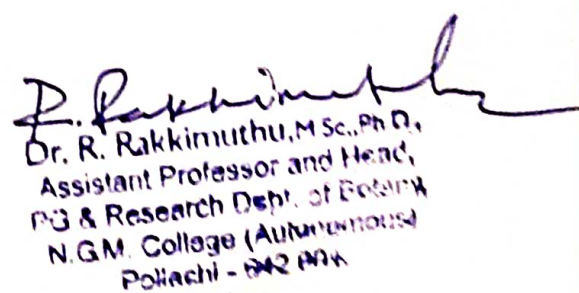 R. Rakkimuthu
Dr. R. Rakkimuthu, M.Sc., Ph.D.,
Assistant Professor and Head,
PG & Research Dept. of Botany
N.G.M. College (Autonomous)
Pollachi - 642